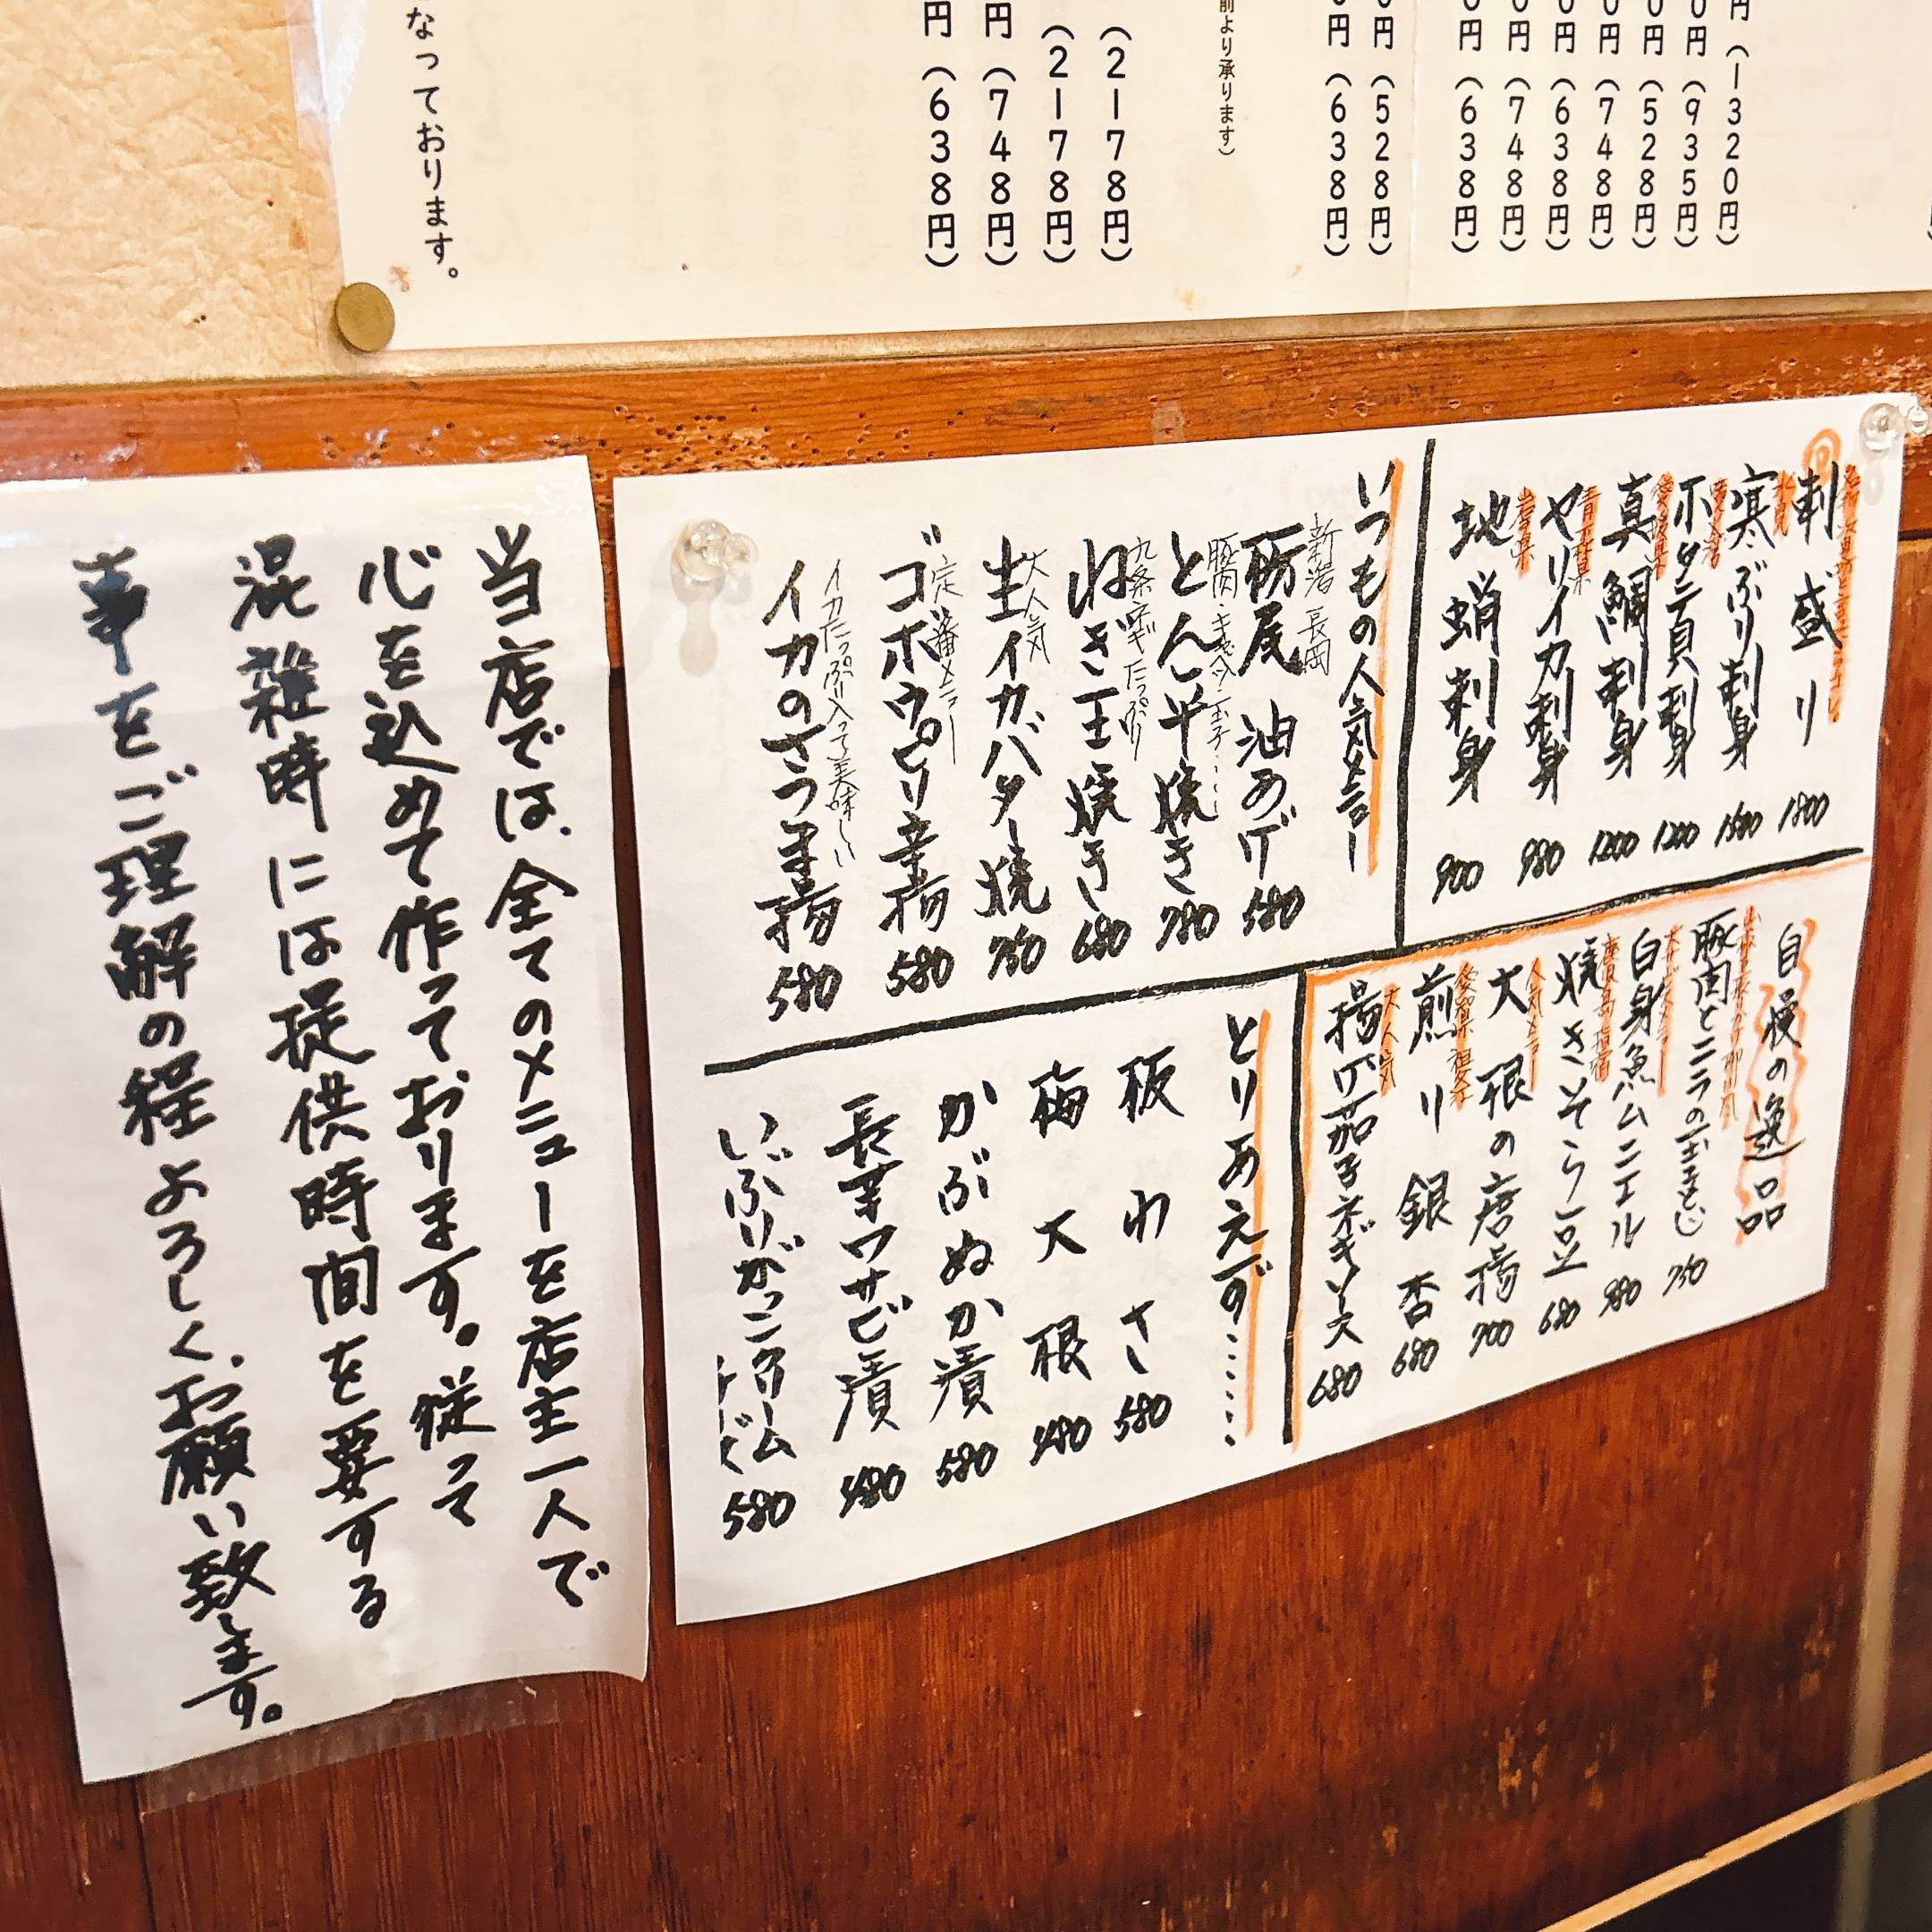 円（1320円）
0円（935円）
0円（528円）
0円（748円）
0円（638円）
0円（748円）
0円（638円）
0円（528円）
0円（638円）
前より承ります）
（2178円）
（2178円）
円（748円）
円（638円）
なっております。
刺盛り 1800
寒ぶり刺身 1500
ホタテ貝刺身 1200
愛媛県
真鯛刺身 1200
青森県
ヤリイカ刺身 980
岩手県
地蛸刺身 900
いつもの人気メニュー
新潟 長岡
栃尾 油あげ 580
豚肉・キャベツ・玉子……
とん平焼き 780
九条ネギたっぷり
ねぎ玉焼き 680
大人気
生イカバター焼 750
定番メニュー
ゴボウピリ辛揚 580
イカたっぷり入って美味しい
イカのさつま揚 580
自慢の逸品
豚肉とニラの玉子とじ 750
白身魚ムニエル 980
鹿児島 指宿
焼きそら豆 680
人気メニュー
大根の唐揚 700
愛知県 祖父江
煎り銀杏 680
大人気
揚げ茄子ネギソース 680
とりあえず……
板わさ 580
梅大根 480
かぶぬか漬 580
長芋ワサビ漬 480
いぶりがっこクリームチーズ 580
当店では、全てのメニューを店主一人で
心を込めて作っております。従って
混雑時には提供時間を要する
事をご理解の程よろしく、お願い致します。